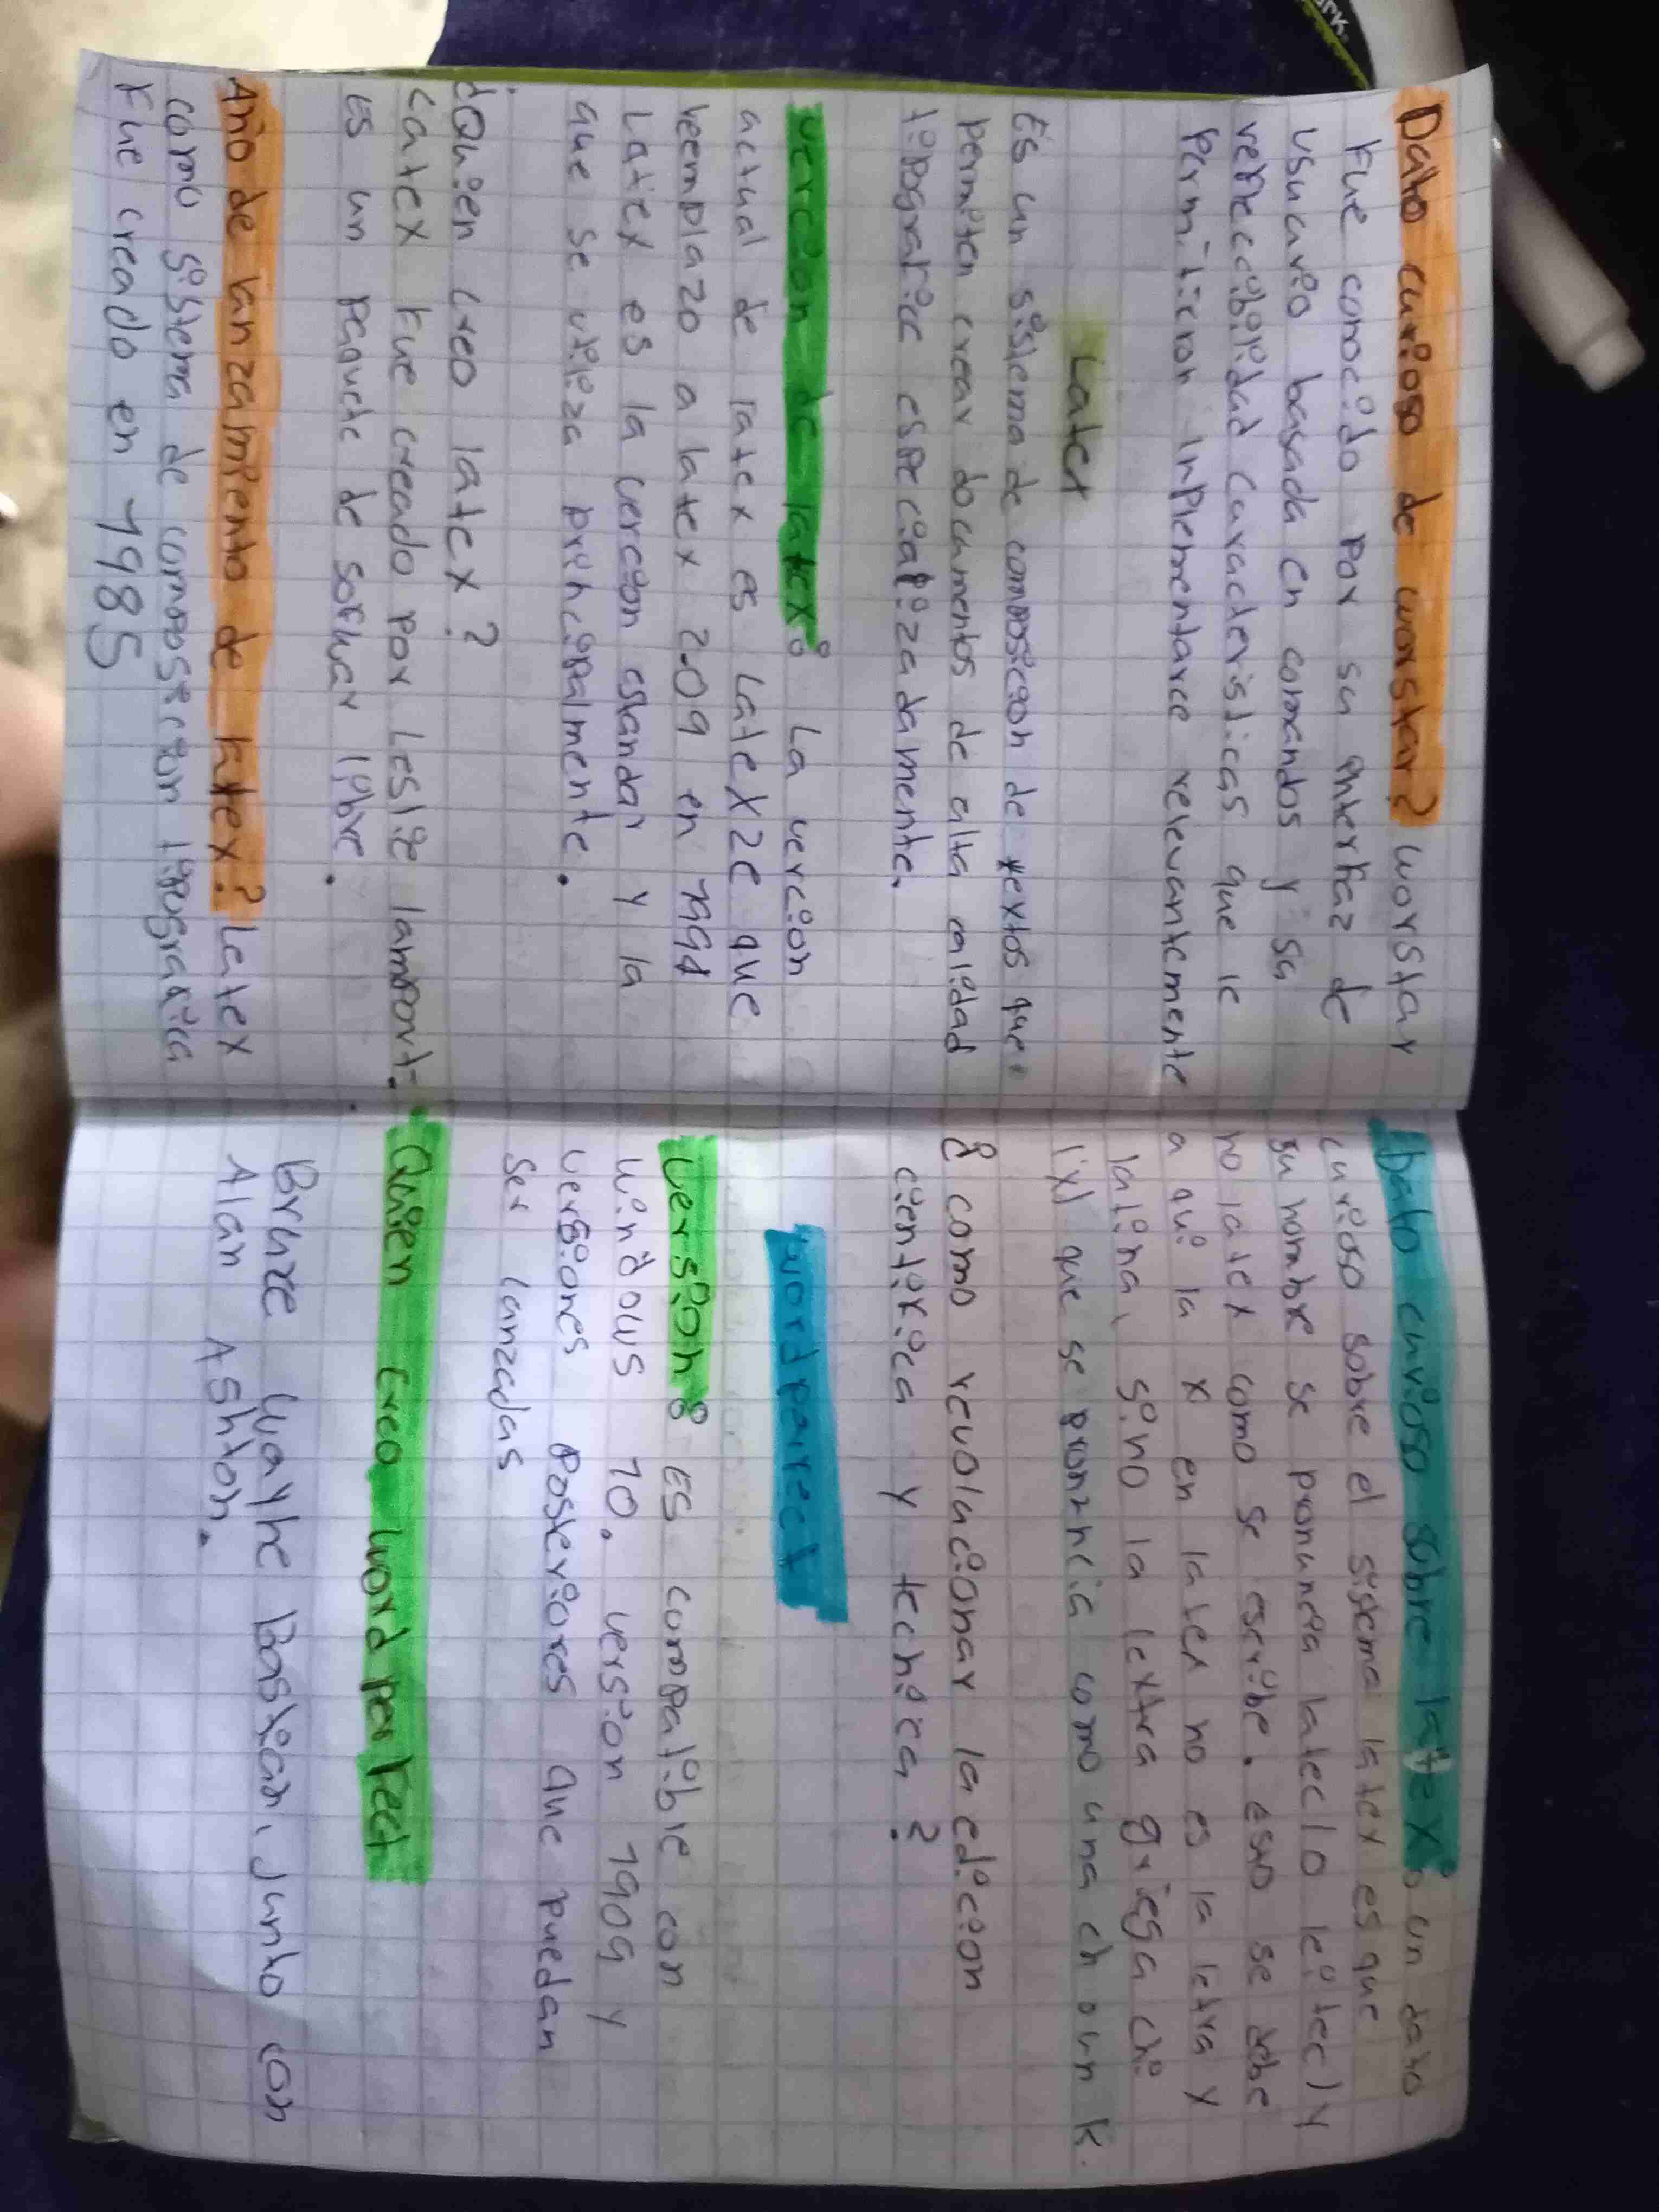 Dato curioso de worstar? worstar
Fue conocido por su interfaz de
usucario basada en comandos y su
refleccibilidad caracteristicas que le
permiticron inplementarce relevantemente
Latex
Es un sistema de composicion de textos que
permiten crear documentos de alta calidad
tipografica especializadamente.
vercion de latex: La vercion
actual de latex es LateX2e que
reemplazo a latex 2.09 en 1994
Latex es la vercion estandar y la
que se utiliza principalmente.
¿Quien creo latex?
Latex fue creado por Leslie lamport.
Es un paquete de softwar libre.
Año de lanzamiento de latex? Latex
como sistema de composicion tipografica
Fue creado en 1985
Dato curioso sobre latex: un dato
curioso sobre el sistema latex es que
su nombre se pronuncia latec(o leitec) y
no latex como se escribe. esto se debe
a qui la x en latex no es la letra y
latina, sino la lextra griega chi
(x) que se pronuncia como una ch o un k.
¿ como revolucionar la edicion
cientifica y tecnica?
wordparect
Version: Es compatible con
windows 10. version 1909 y
versiones posteriores que puedan
ser lanzadas
Quien creo word perfect
Bruze wayne Bastian, junto con
Alan Ashton.